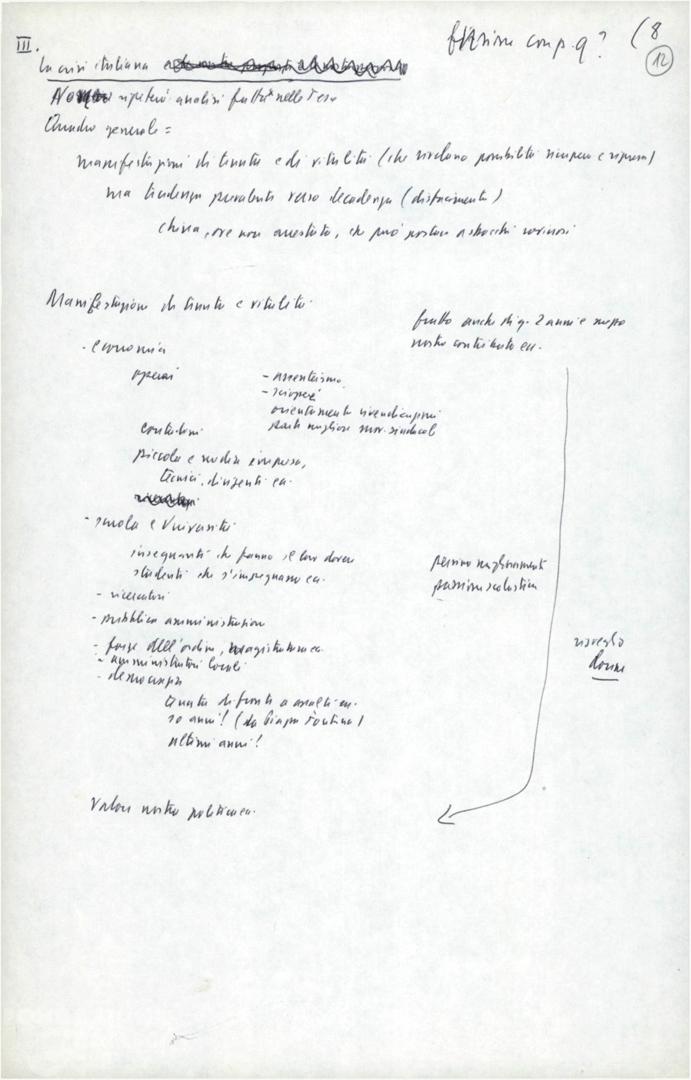 III.
fusione con p. 9? (8
12
La crisi italiana
Non ripeterò analisi fatta nelle Tesi
Quadro generale =
manifestazioni di tenuta e di vitalità (che rivelano possibilità recupero e ripresa)
ma tendenza prevalente verso decadenza (disfacimento)
china, ove non arrestata, che può portare a sbocchi rovinosi
Manifestazione di tenuta e vitalità
frutto anche di q. 2 anni e
nostro contributo ecc.
- economia
operai
- assenteismo
- scioperi
orientamento rivendicazioni
parte migliore mov. sindacal
contadini
piccola e media impresa,
tecnici, dirigenti ecc.
- scuola e Università
insegnanti che fanno il loro dovere
studenti che s'impegnano ecc.
persino miglioramenti
passione scolastica
- ricercatori
- pubblica amministrazione
- forze dell'ordine, magistratura ecc.
- amministratori locali
- democrazia
risveglio
donne
tenuta di fronte a assalti ecc.
10 anni! (da Piazza Fontana)
ultimi anni!
Valore nostra politica ecc.